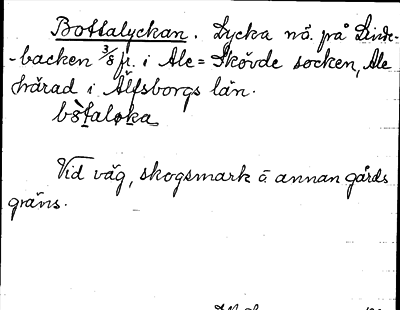 Bottalyckan. Lycka nö. på Linde-
-backen 3/8 fr. i Ale=Skövde socken, Ale
härad i Älfsborgs län.
bòtaløka
Vid väg, skogsmark o. annan gårds
gräns.